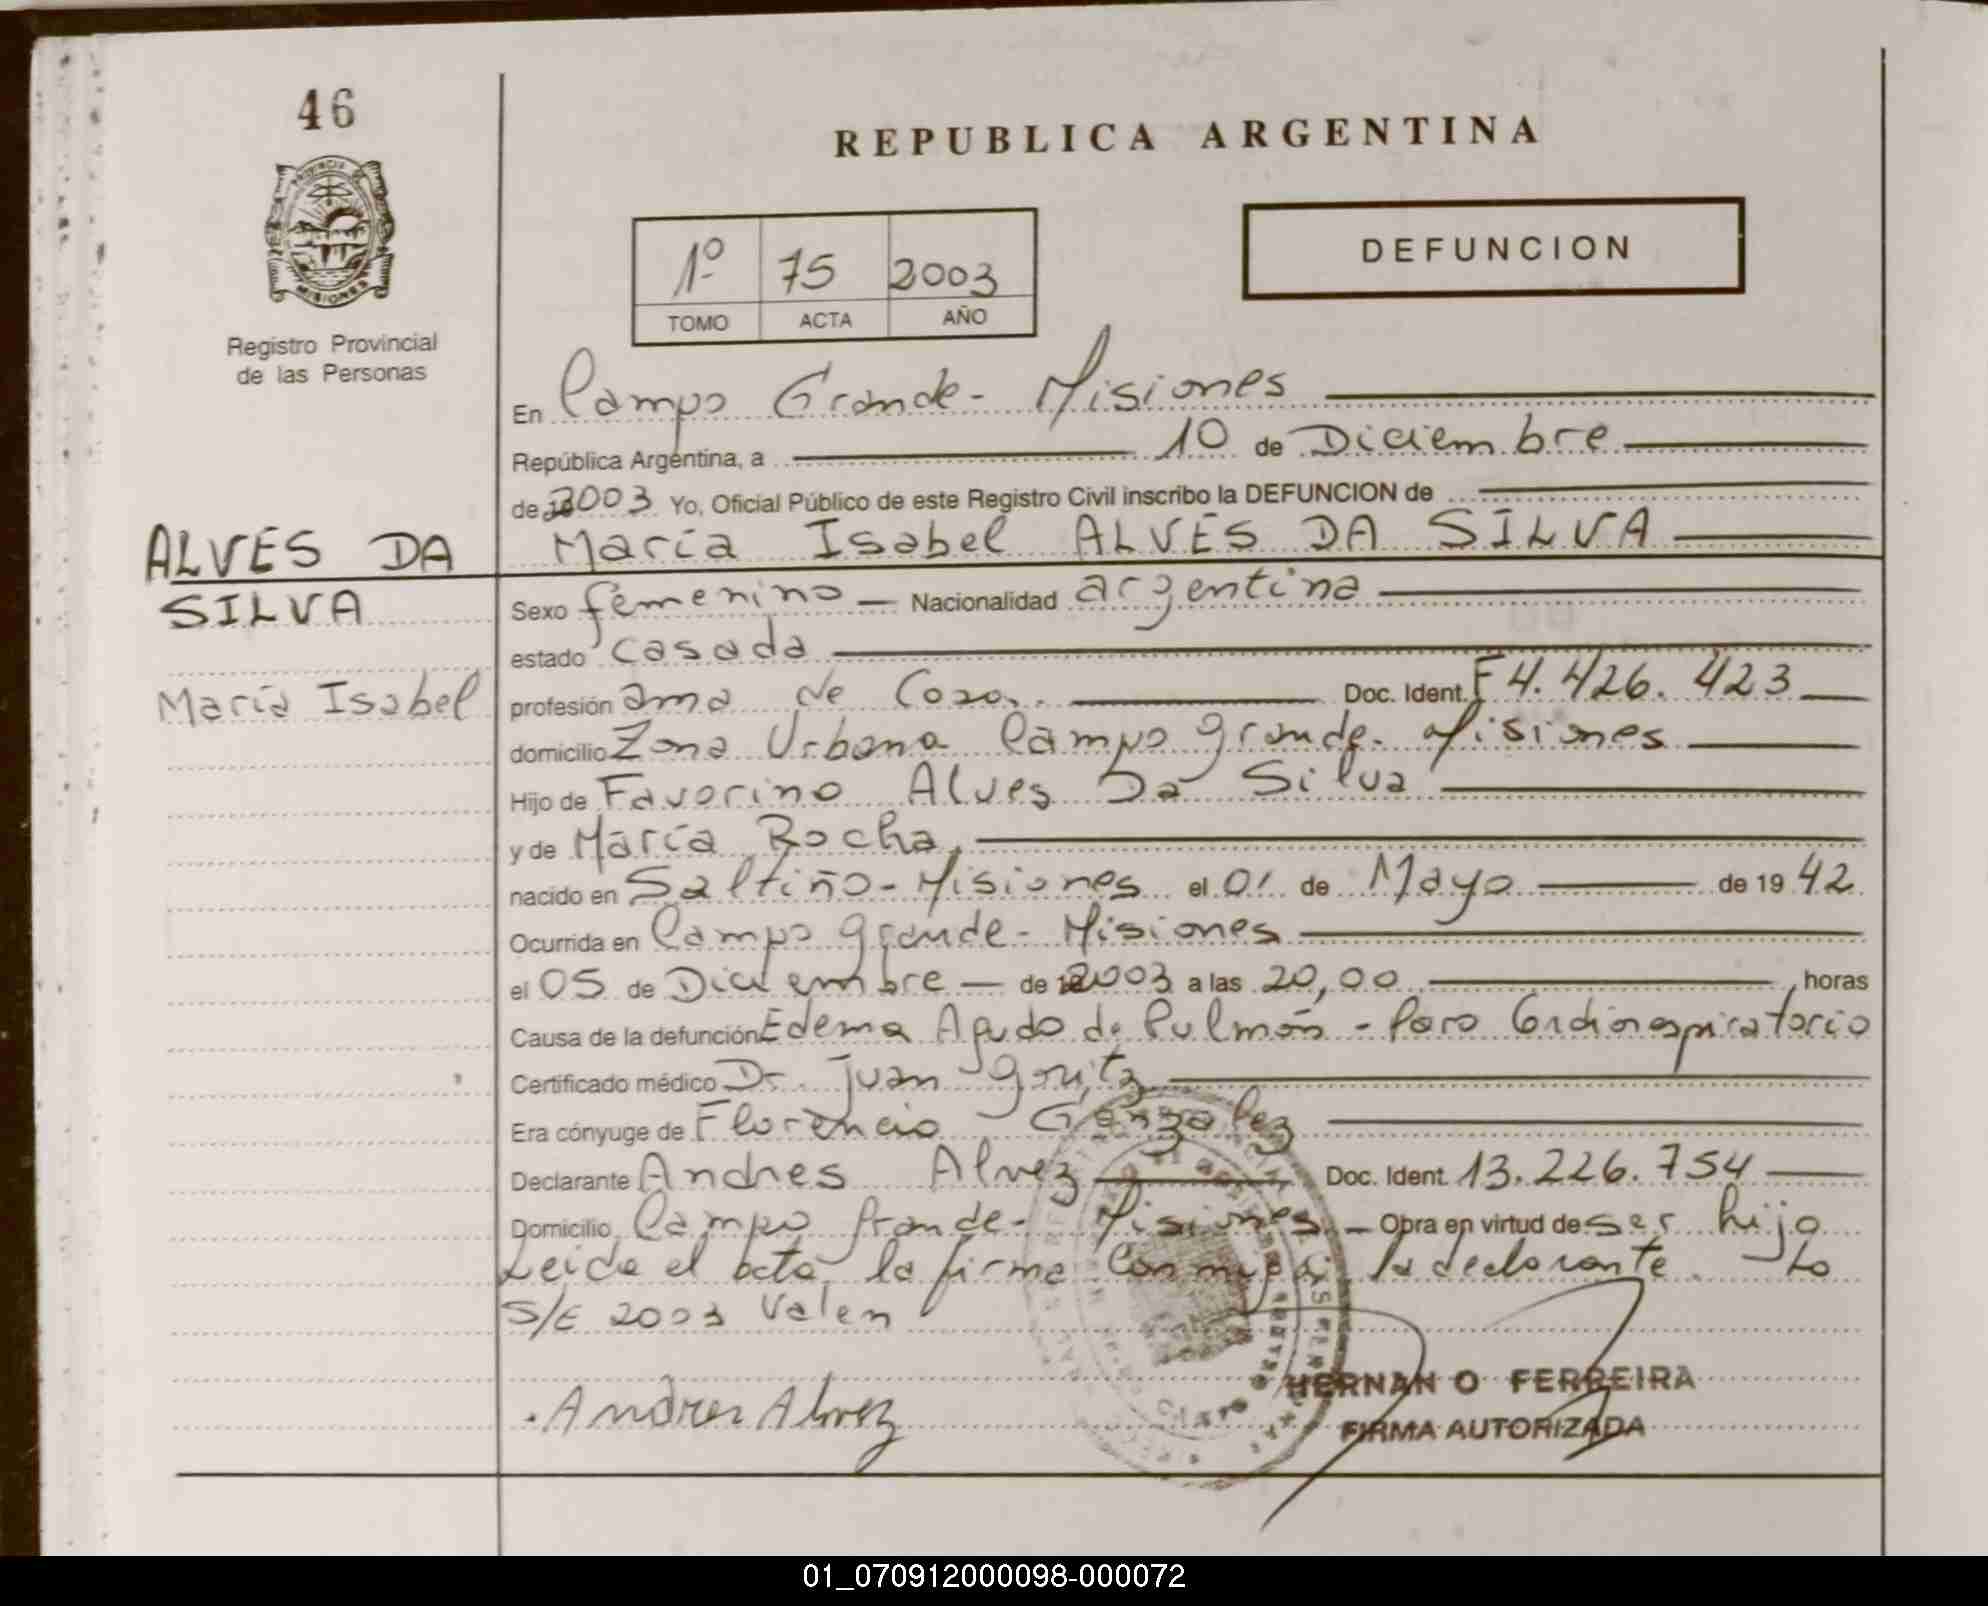 46
REPUBLICA ARGENTINA
DEFUNCION
1º 75 2003
TOMO ACTA AÑO
Registro Provincial
de las Personas
En Campo Grande - Misiones
República Argentina, a 10 de Diciembre
de 2003 Yo, Oficial Público de este Registro Civil inscribo la DEFUNCION de
ALVES DA
SILVA
María Isabel
María Isabel ALVES DA SILVA
Sexo femenino — Nacionalidad argentina
estado casada
profesión ama de Casa. Doc. Ident. F 4.426.423
domicilio Zona Urbana Campo Grande. Misiones
Hijo de Favorino Alves Da Silva
y de María Rocha
nacido en Saltiño - Misiones el 01 de Mayo de 1942
Ocurrida en Campo Grande - Misiones
el 05 de Diciembre — de 2003 a las 20,00 horas
Causa de la defunción Edema Agudo de Pulmón - Paro Cardiorespiratorio
Certificado médico Dr. Juan
Era cónyuge de Florencio Gonzalez
Declarante Andres Alvez Doc. Ident. 13.226.754
Domicilio Campo Grande - Misiones — Obra en virtud de ser hijo
Leida el acta, la firma conmigo la declarante. Lo
S/E 2003 Valen
Andres Alvez
HERNAN O FERREIRA
FIRMA AUTORIZADA
01_070912000098-000072